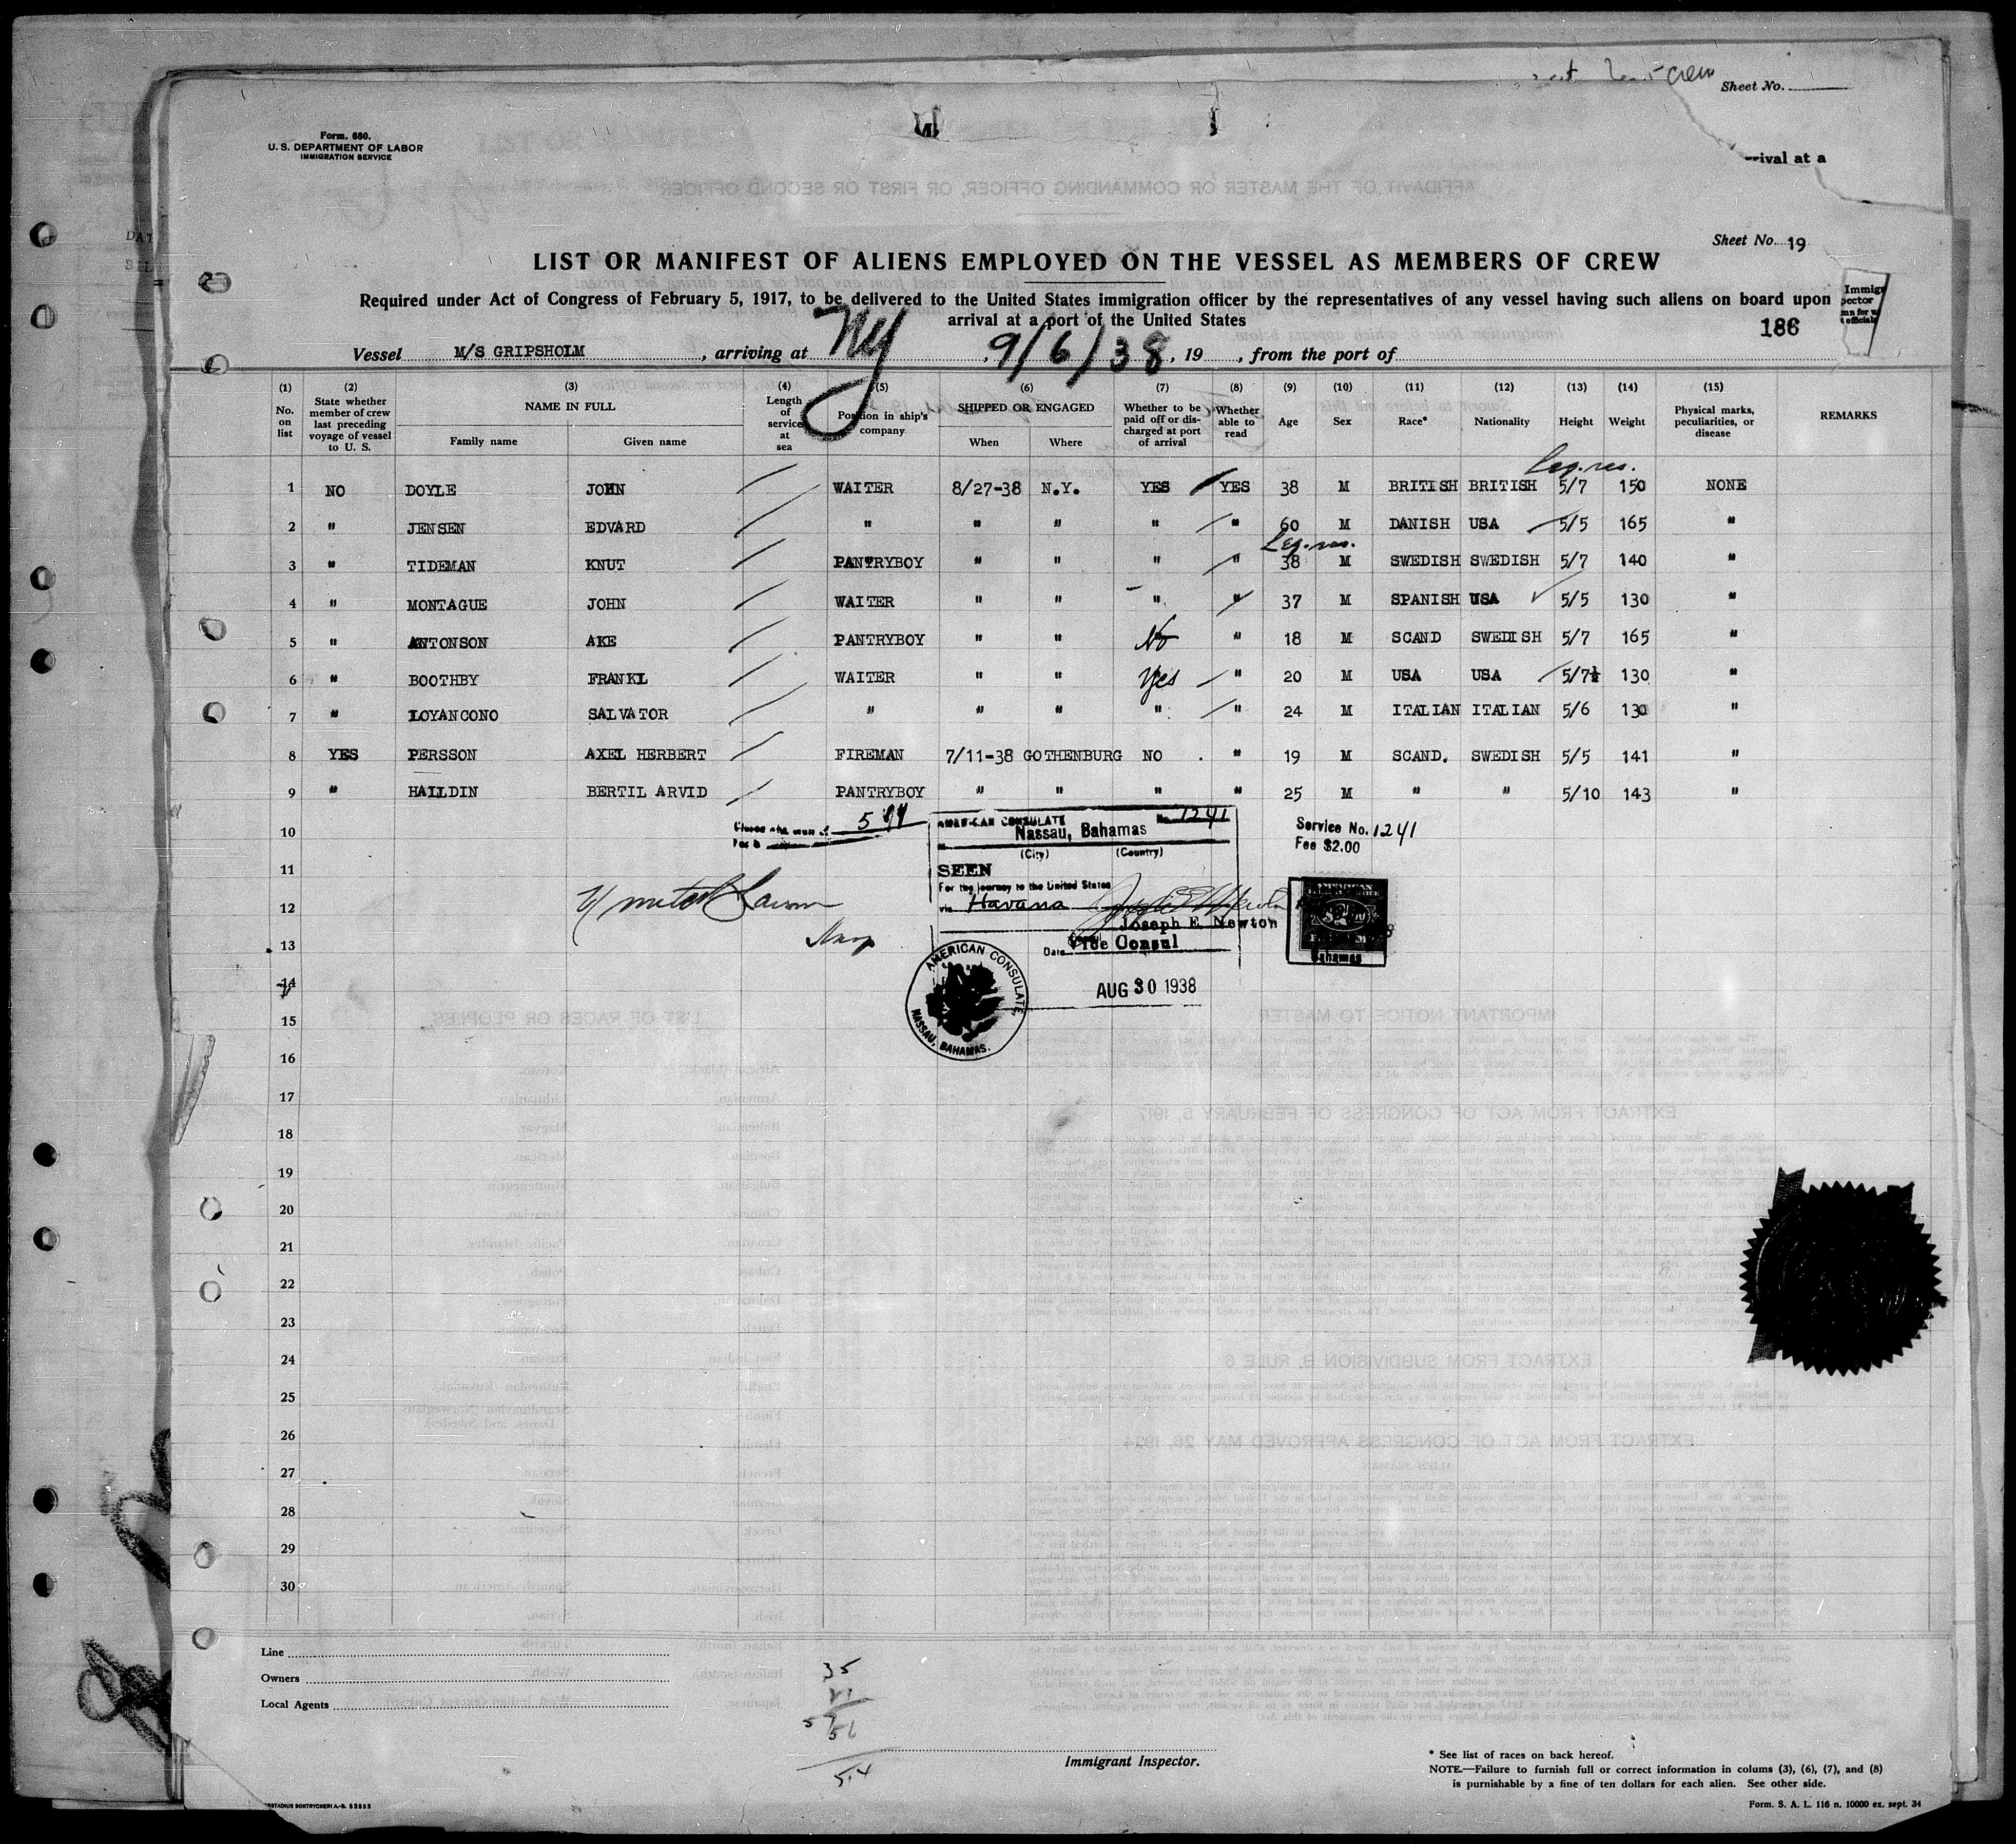 crew
Sheet No.
Form. 680.
U. S. DEPARTMENT OF LABOR
IMMIGRATION SERVICE
rival at a
Sheet No. 19
LIST OR MANIFEST OF ALIENS EMPLOYED ON THE VESSEL AS MEMBERS OF CREW
Required under Act of Congress of February 5, 1917, to be delivered to the United States immigration officer by the representatives of any vessel having such aliens on board upon
arrival at a port of the United States
186
Vessel M/S GRIPSHOLM, arriving at NY, 9/6/38, 19, from the port of
(1) (2) (3) (4) (5) (6) (7) (8) (9) (10) (11) (12) (13) (14) (15)
No. on list State whether member of crew last preceding voyage of vessel to U. S. NAME IN FULL Family name Given name Length of service at sea Position in ship's company SHIPPED OR ENGAGED When Where Whether to be paid off or discharged at port of arrival Whether able to read Age Sex Race* Nationality Height Weight Physical marks, peculiarities, or disease REMARKS
Leg. res.
1 NO DOYLE JOHN WAITER 8/27-38 N.Y. YES YES 38 M BRITISH BRITISH 5/7 150 NONE
2 " JENSEN EDVARD " " " " " 60 M DANISH USA 5/5 165 "
Leg. res.
3 " TIDEMAN KNUT PANTRYBOY " " " " 38 M SWEDISH SWEDISH 5/7 140 "
4 " MONTAGUE JOHN WAITER " " " " 37 M SPANISH USA 5/5 130 "
5 " ANTONSON AKE PANTRYBOY " " No " 18 M SCAND SWEDISH 5/7 165 "
6 " BOOTHBY FRANKL WAITER " " Yes " 20 M USA USA 5/7½ 130 "
7 " LOYANCONO SALVATOR " " " " " 24 M ITALIAN ITALIAN 5/6 130 "
8 YES PERSSON AXEL HERBERT FIREMAN 7/11-38 GOTHENBURG NO " 19 M SCAND. SWEDISH 5/5 141 "
9 " HAILDIN BERTIL ARVID PANTRYBOY " " " " 25 M " " 5/10 143 "
10
11
12
13
14
15
16
17
18
19
20
21
22
23
24
25
26
27
28
29
30
AMERICAN CONSULATE No. 1241
Nassau, Bahamas
(City) (Country)
SEEN
For the journey to the United States
via Havana
Joseph E. Newton
Vice Consul
Date
AUG 30 1938
AMERICAN CONSULATE, NASSAU, BAHAMAS.
Service No. 1241
Fee $2.00
Bahamas
Line
Owners
Local Agents
35
Immigrant Inspector.
* See list of races on back hereof.
NOTE.—Failure to furnish full or correct information in colums (3), (6), (7), and (8)
is purnishable by a fine of ten dollars for each alien. See other side.
Form. S. A. L. 116 n. 10000 ex. sept. 34